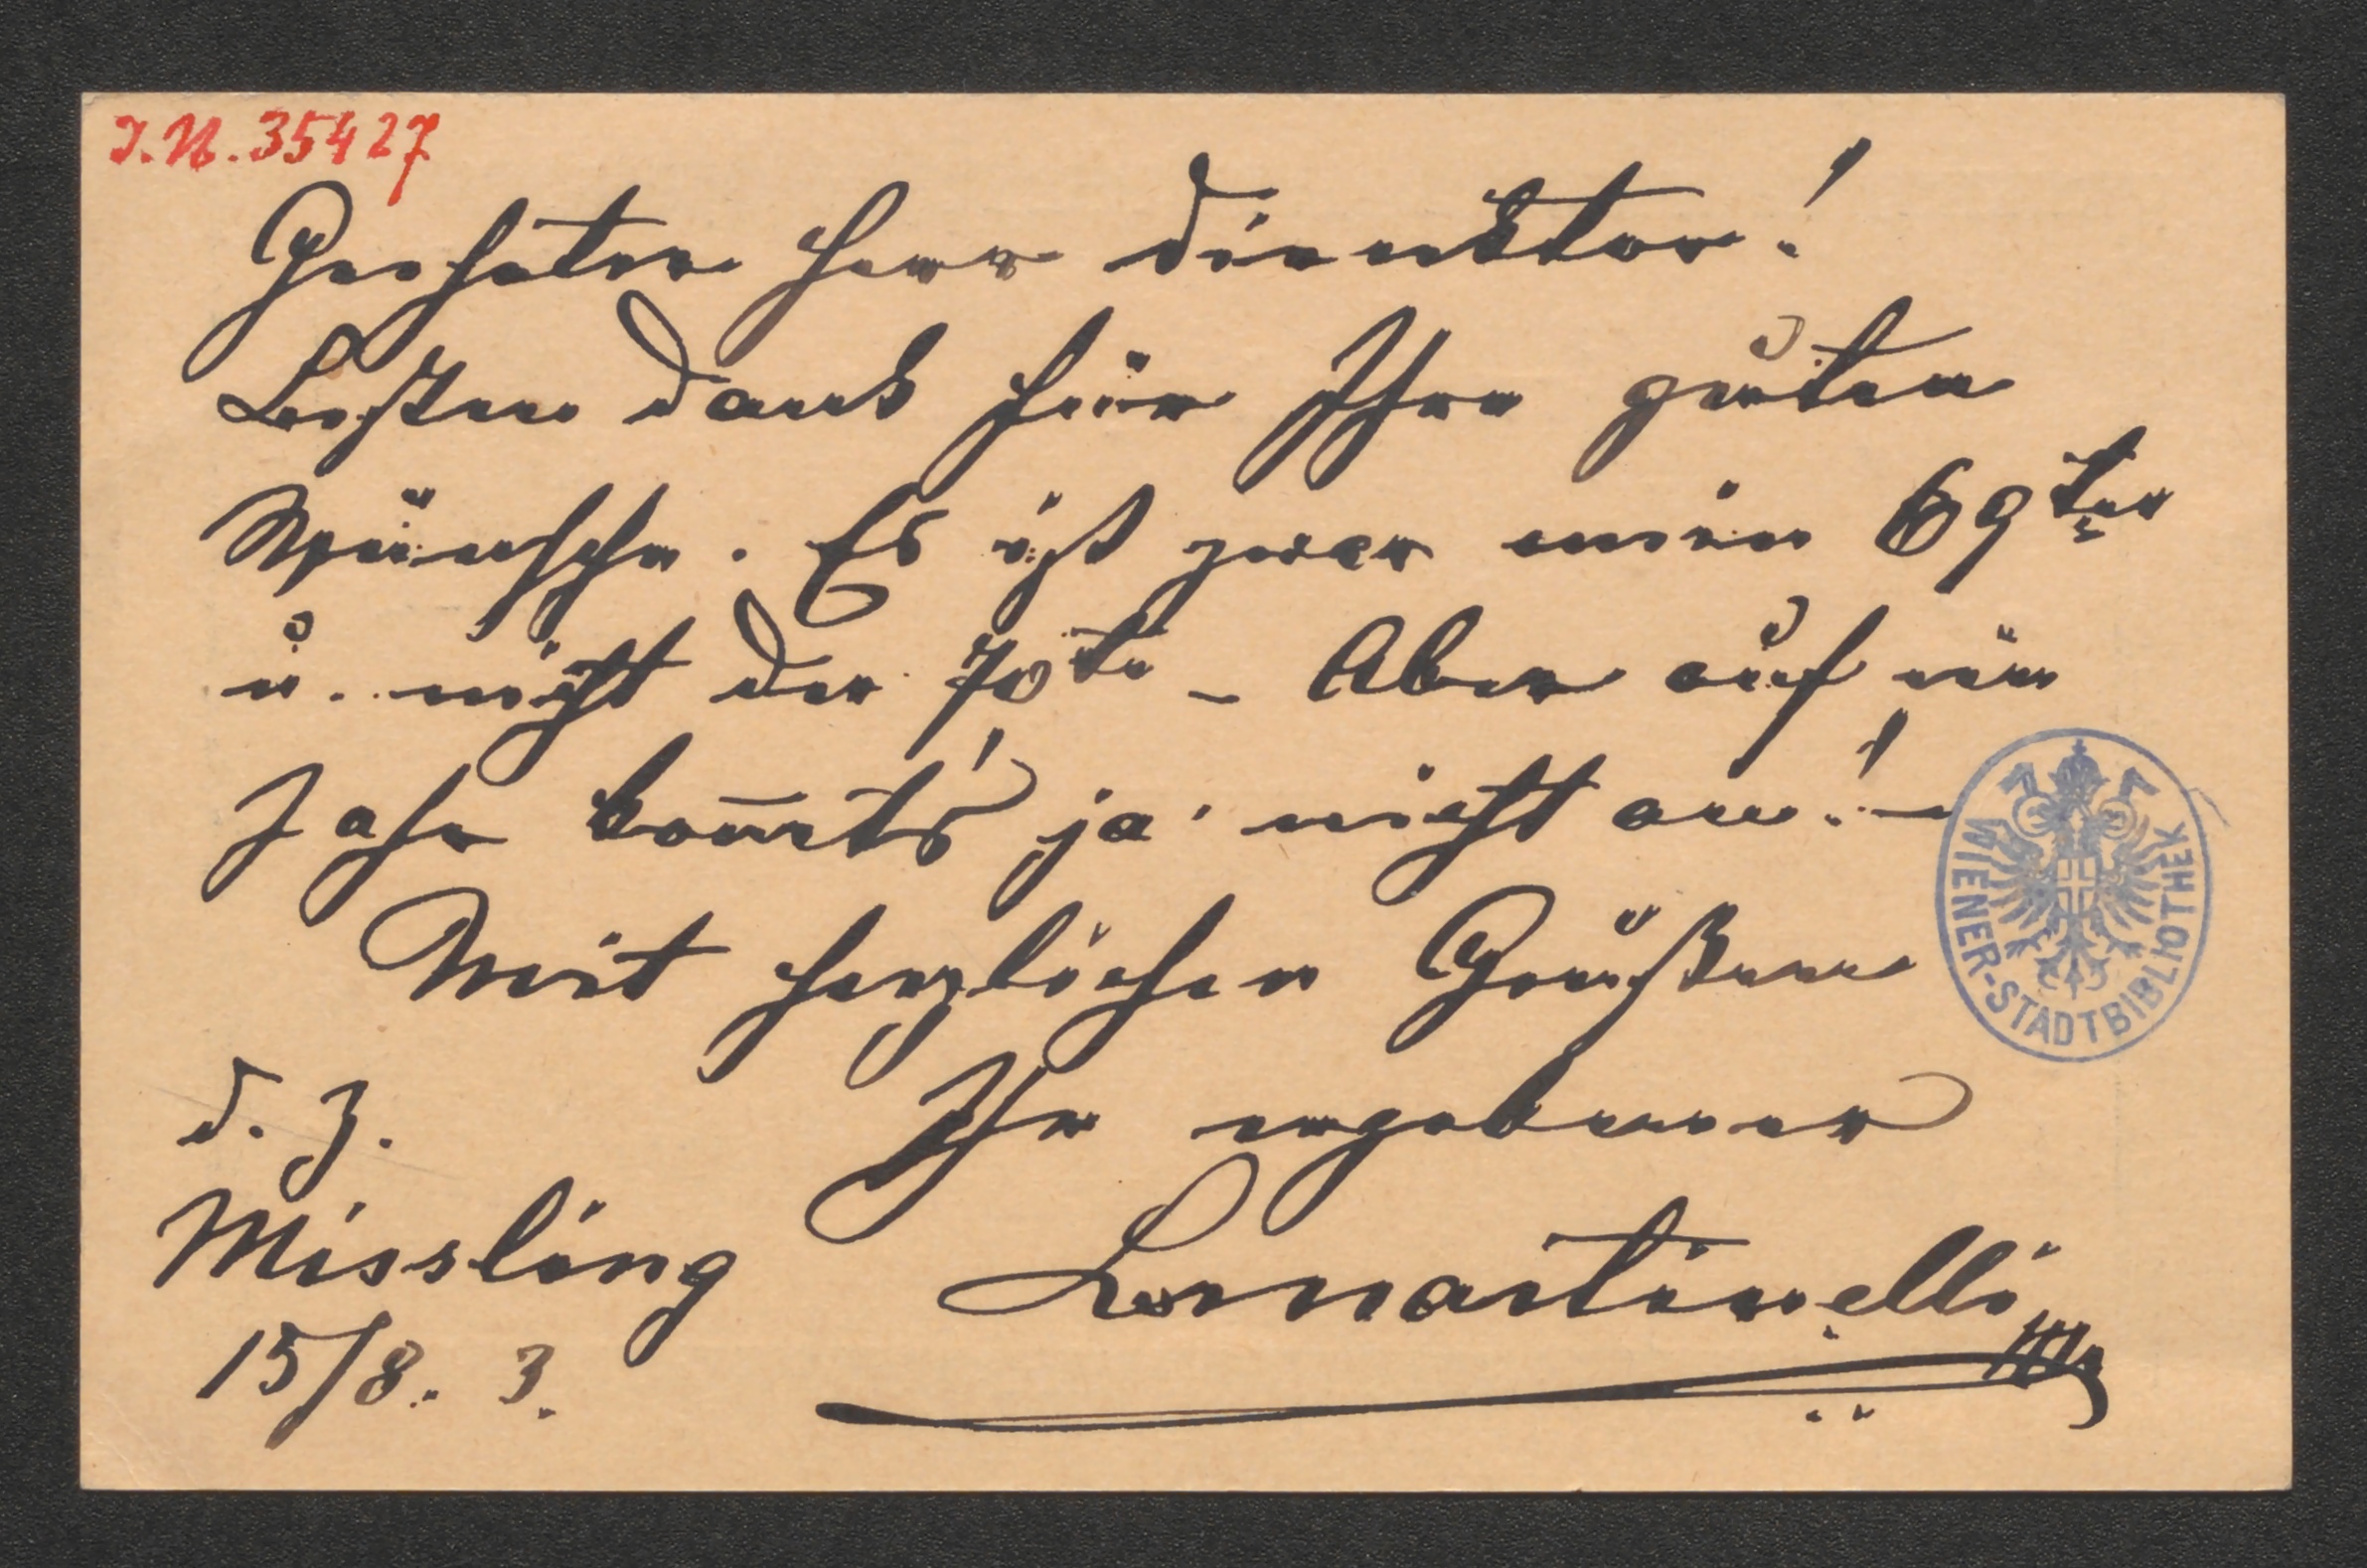 I.N. 35427
Geehrter Herr Direcktor!
Besten Dank für Ihre guten
Wünsche. Es ist zwar mein 69ter
u. nicht der 70te – Aber auf ein
Jahr kom̅t's ja nicht an! –
Mit herzlichen Grüßen
Ihr ergebener
d. Z.
Missling
LvMartinelli
15/8. 3.
WIENER-STADTBIBLIOTHEK